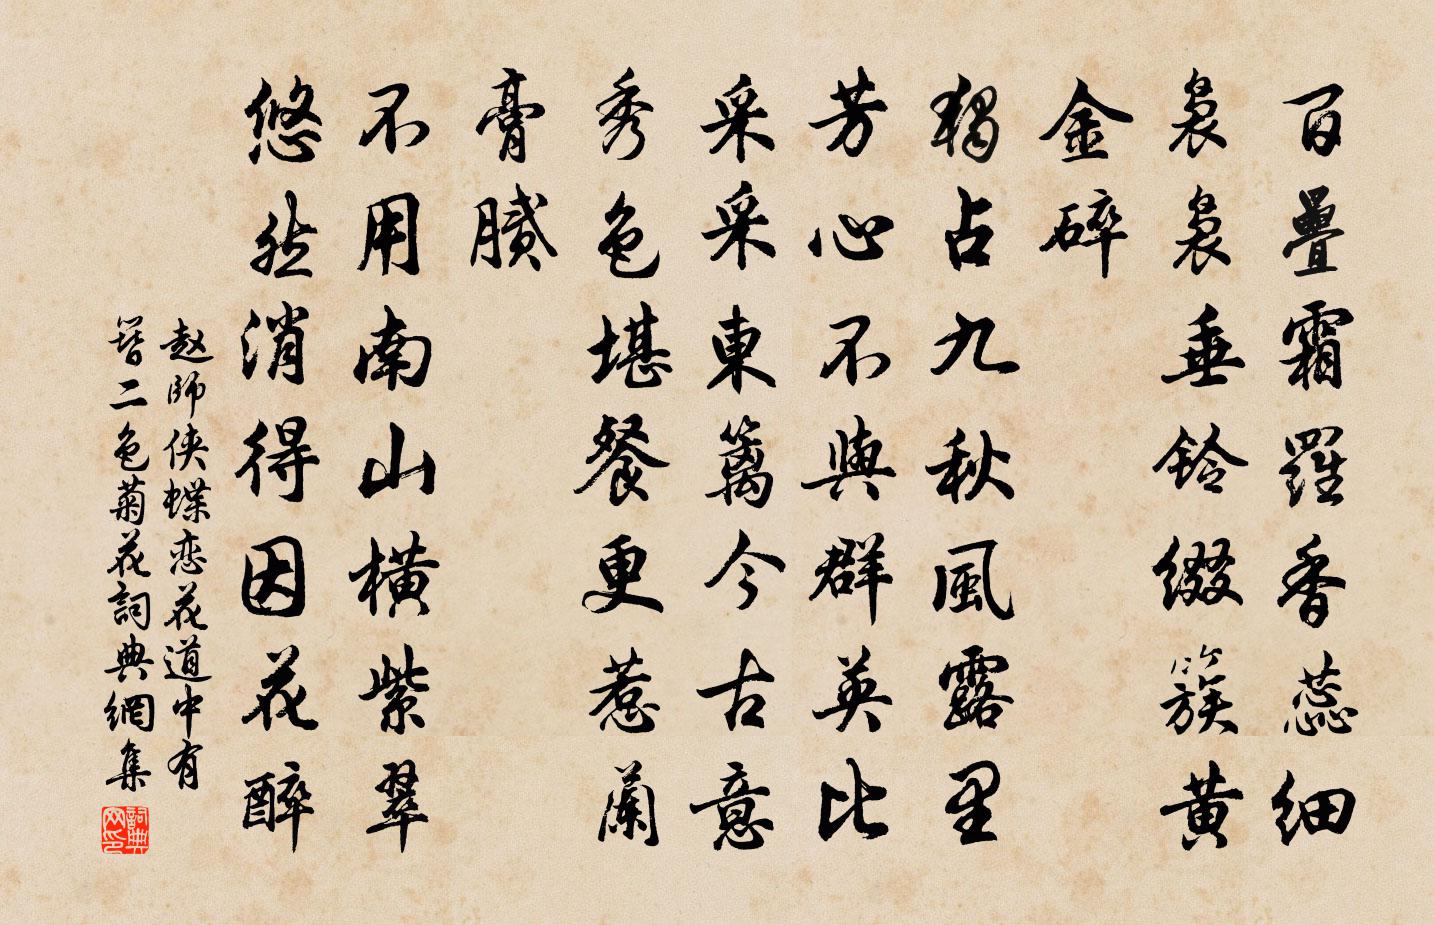 百疊霜羅香蕊細
裊裊垂鈴綴簇黃
金碎
獨占九秋風露里
芳心不與群英比
采采東籬今古意
秀色堪餐更惹蘭
膏膩
不用南山橫紫翠
悠然消得因花醉
赵師俠蝶恋花道中有
簪二色菊花詞典網集
詞典
网印